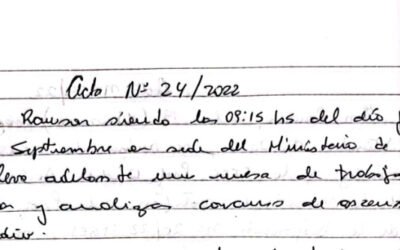 Acta Nº 24/2022
Rawson siendo las 09:15 hs del día
Septiembre en sede del Ministerio de
lleva adelante una mesa de trabajo
y analizar